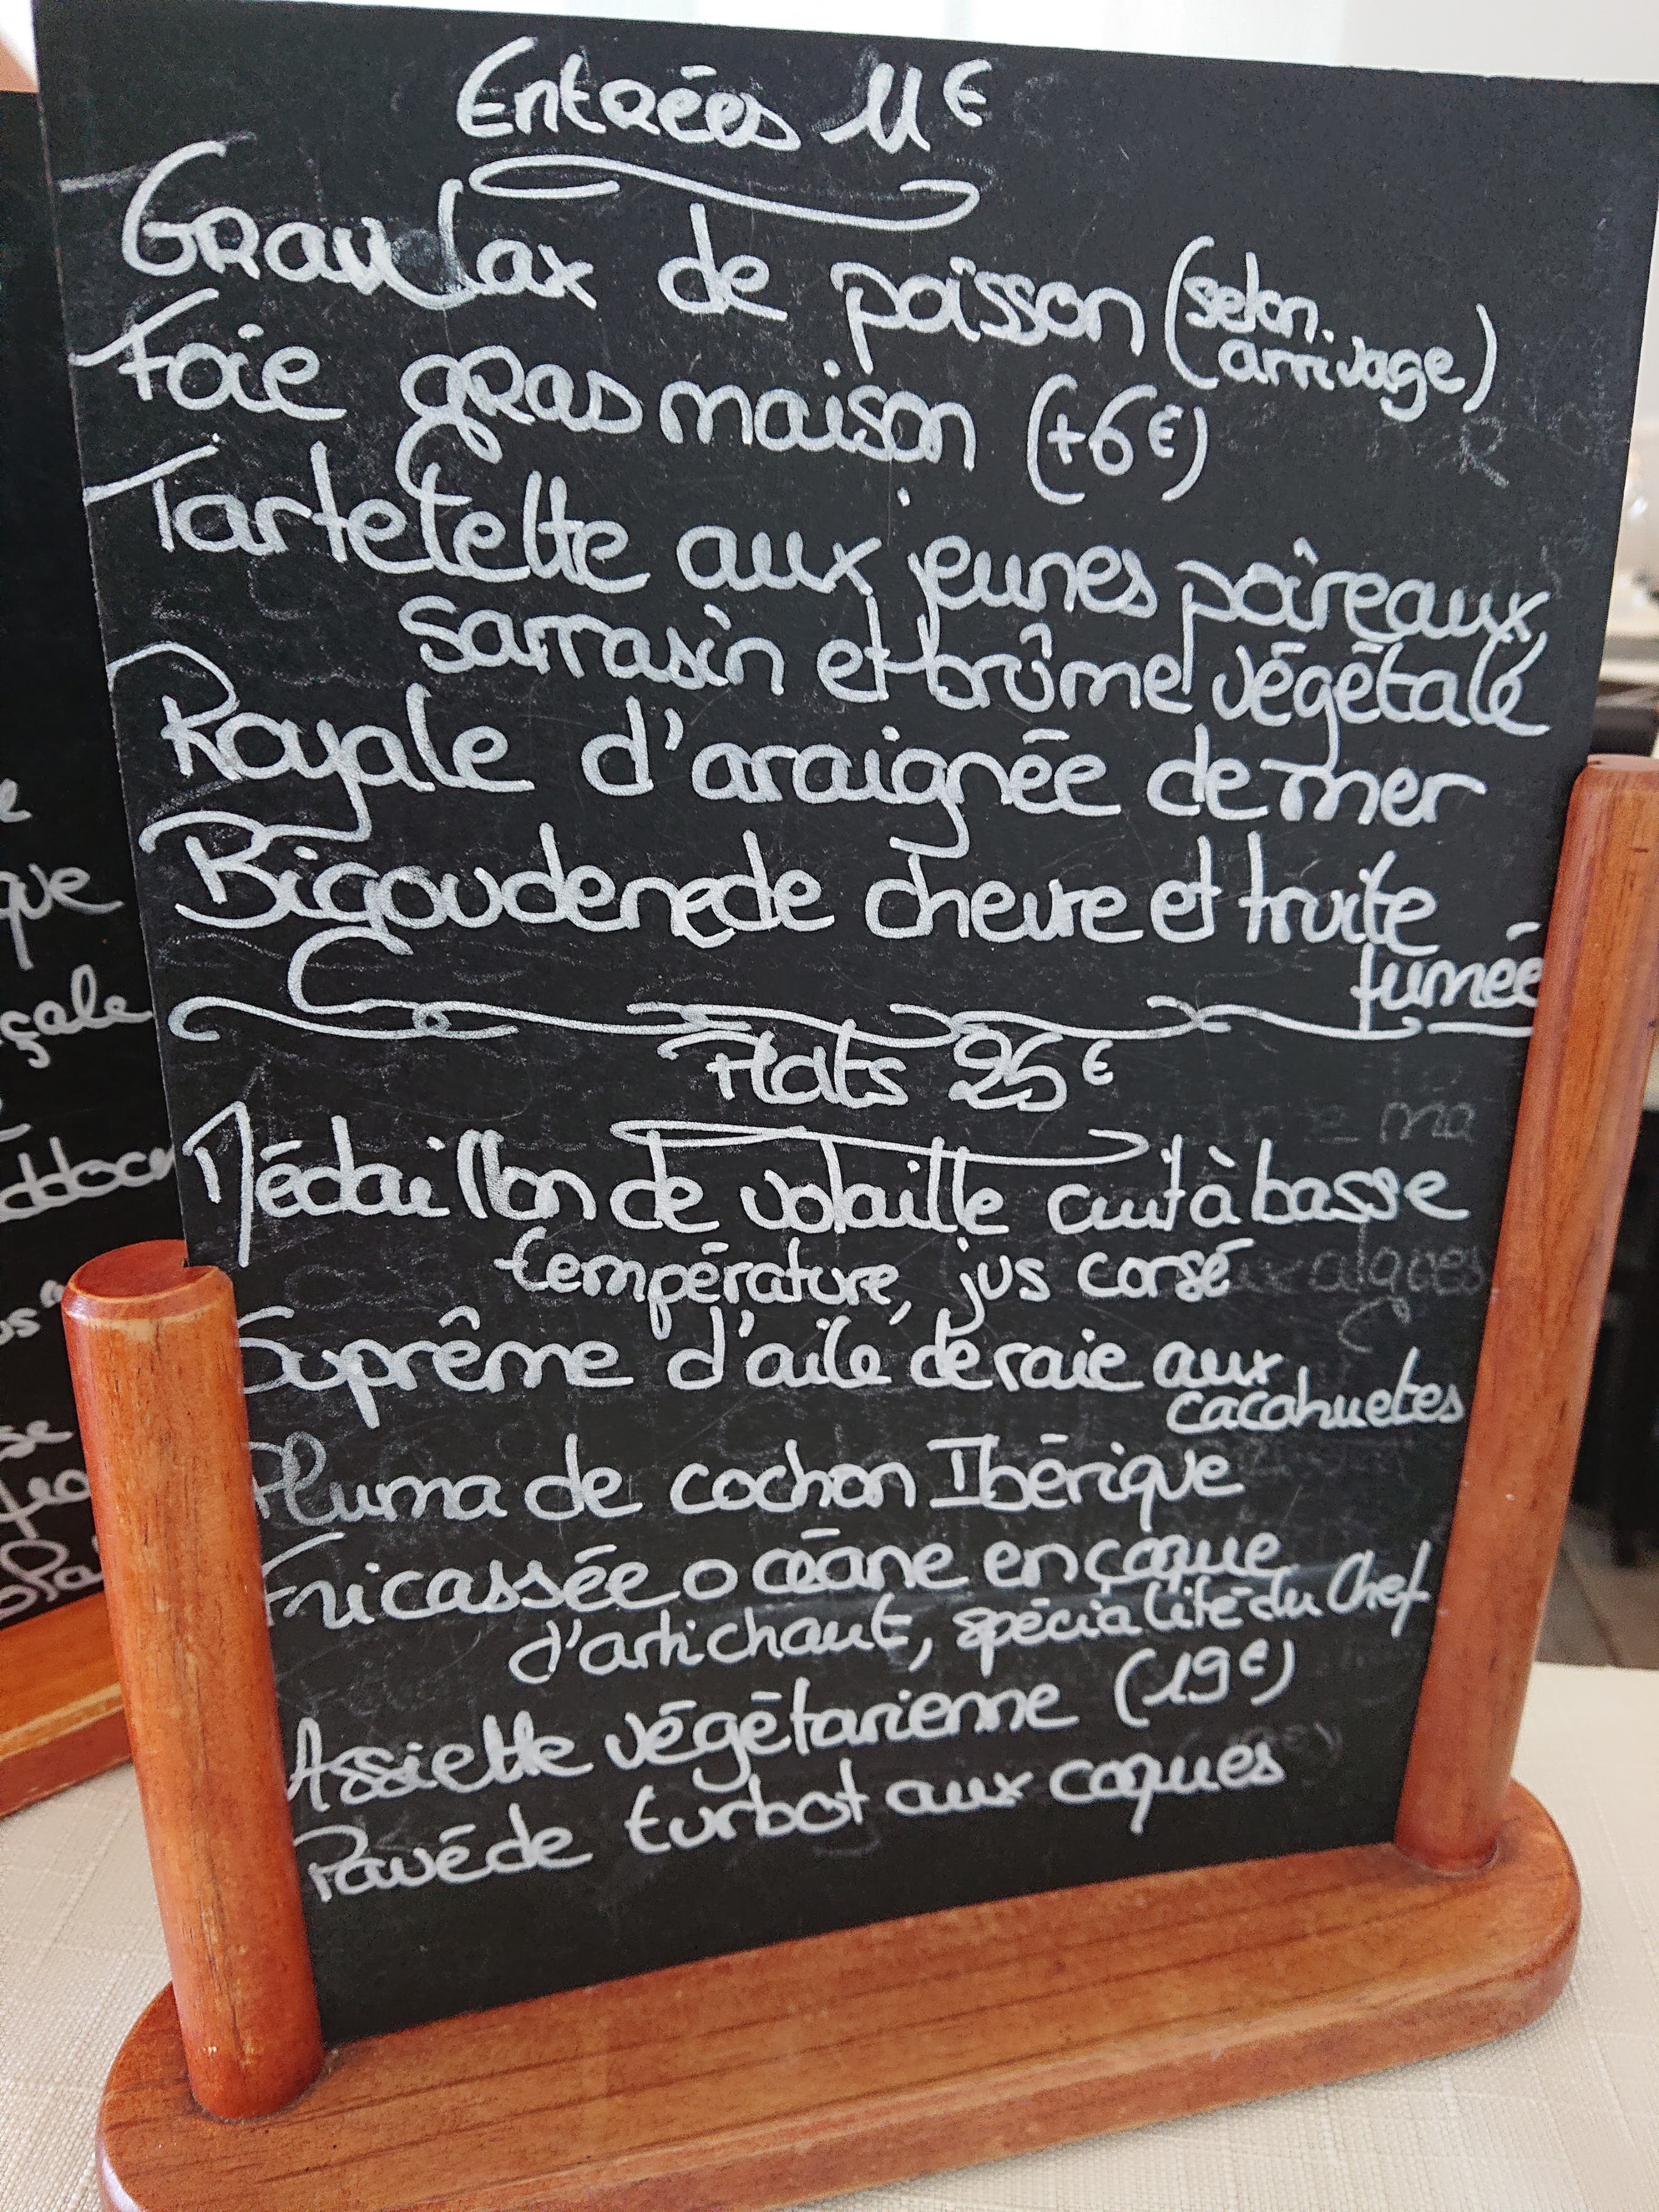 Entrées 11€
Gravlax de poisson (selon
arrivage)
Foie gras maison (+6€)
Tartelette aux jeunes poireaux,
sarrasin et brûme végétale
Royale d'araignée de mer
Bigoudene de chevre et truite
fumée
Plats 25€
Médaillon de volaille cuit à basse
température, jus corsé
Suprême d'aile de raie aux
cacahuetes
Pluma de cochon Ibérique
Fricassée océane en coque
d'artichaut, spécialité du Chef
Assiette végétarienne (19€)
Pavé de turbot aux coques